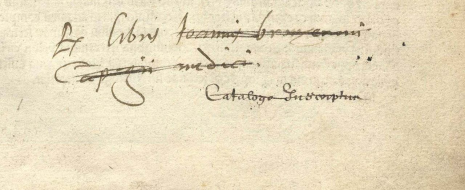 Ex libris Joannis
medici.
Catalogo Inscriptus